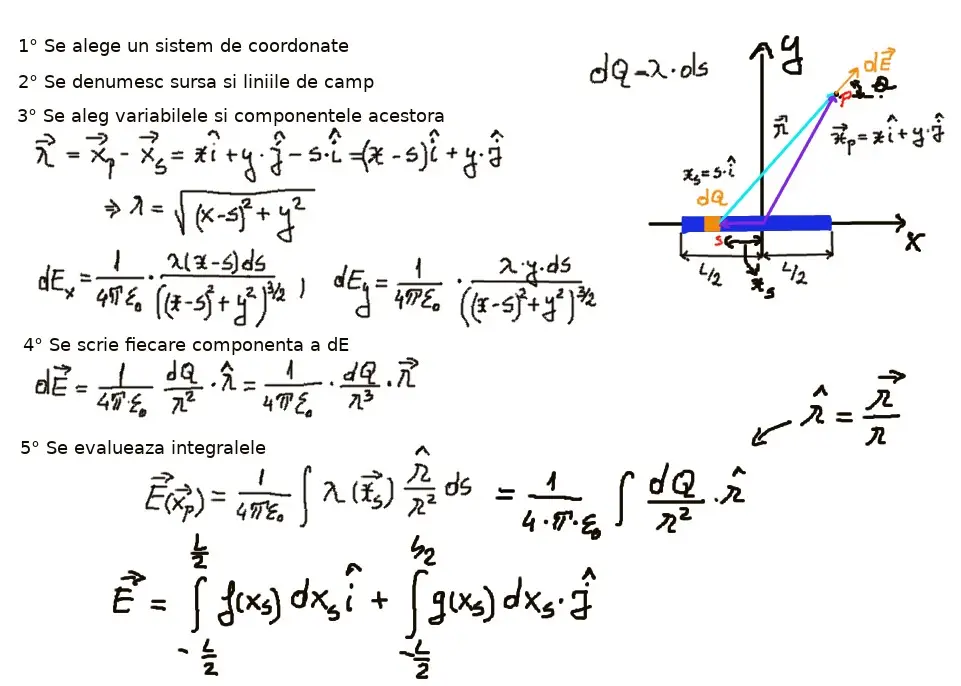 1° Se alege un sistem de coordonate
2° Se denumesc sursa si liniile de camp
3° Se aleg variabilele si componentele acestora
r⃗ = x⃗_p - x⃗_s = xî + y·ĵ - s·î = (x - s)î + y·ĵ
⇒ r = √((x-s)² + y²)
dE_x = 1/(4πε₀) · λ(x-s)ds/((x-s)² + y²)^(3/2) ; dE_y = 1/(4πε₀) · λ·y·ds/((x-s)² + y²)^(3/2)
4° Se scrie fiecare componenta a dE
dE⃗ = 1/(4π·ε₀) dQ/r² · r̂ = 1/(4πε₀) · dQ/r³ · r⃗
5° Se evalueaza integralele
E⃗(x⃗_p) = 1/(4πε₀) ∫ λ(x⃗_s) r̂/r² ds = 1/(4·π·ε₀) ∫ dQ/r² · r̂
E⃗ = ∫_{-L/2}^{L/2} f(x_s) dx_s î + ∫_{-L/2}^{L/2} g(x_s) dx_s · ĵ
dQ = λ·ds
y
dE⃗
P
r⃗
x⃗_p = xî + y·ĵ
x_s = s·î
dQ
s
x
L/2
x_s
L/2
r̂ = r⃗/r